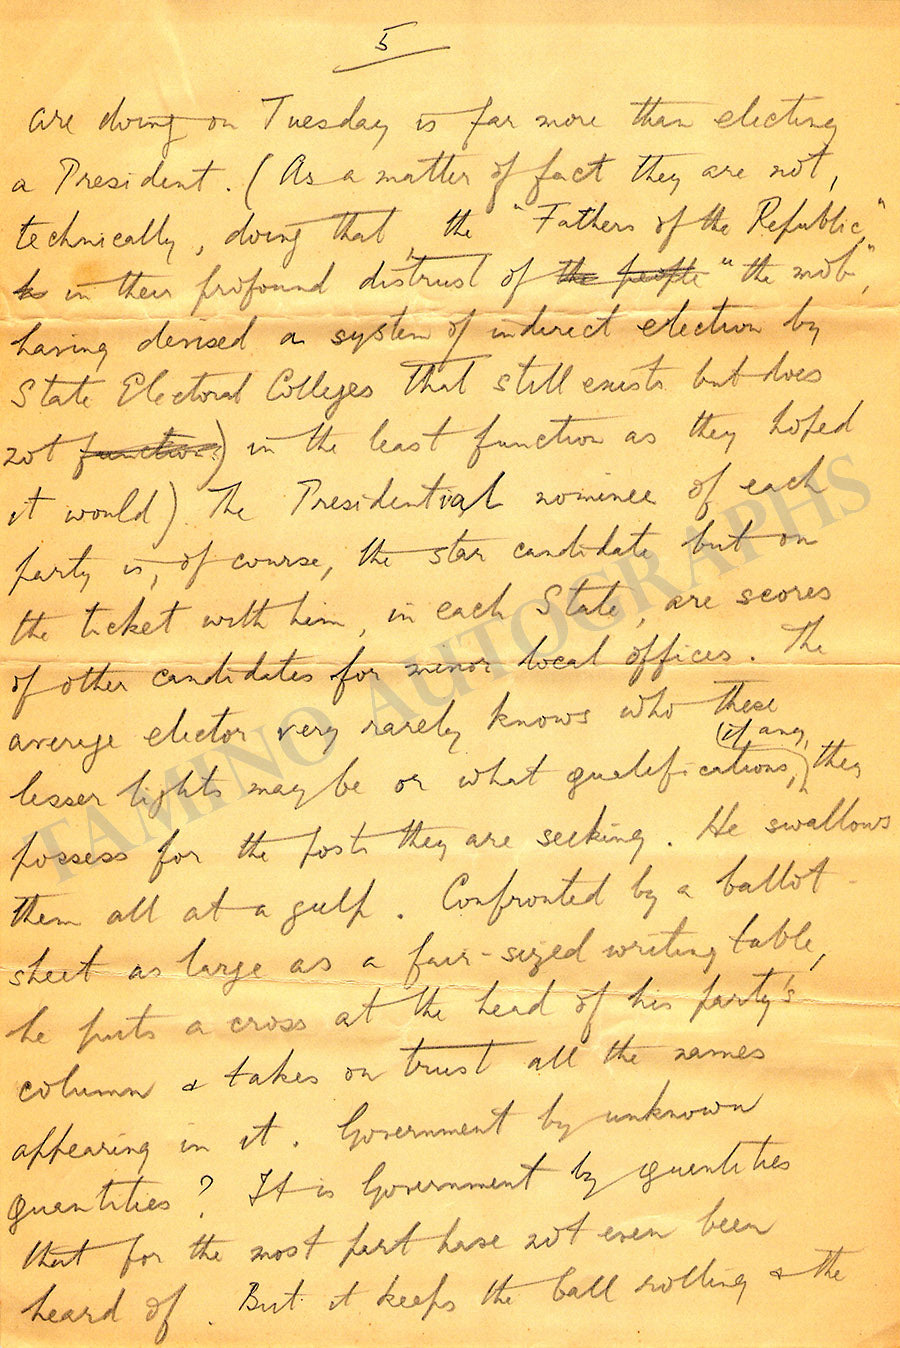 5
are doing on Tuesday is far more than electing
a President. (As a matter of fact they are not,
technically, doing that, the "Fathers of the Republic,"
in their profound distrust of the people "the mob",
having devised a system of indirect election by
State Electoral Colleges that still exists but does
not function) in the least function as they hoped
it would) The Presidential nominee of each
party is, of course, the star candidate but on
the ticket with him, in each State, are scores
of other candidates for minor local offices. The
average elector very rarely knows who these
lesser lights may be or what qualifications, (if any,) they
possess for the posts they are seeking. He swallows
them all at a gulp. Confronted by a ballot-
sheet as large as a fair-sized writing table,
he puts a cross at the head of his party's
column & takes on trust all the names
appearing in it. Government by unknown
quantities? It is Government by quantities
that for the most part have not even been
heard of. But it keeps the ball rolling & the
TAMINO AUTOGRAPHS